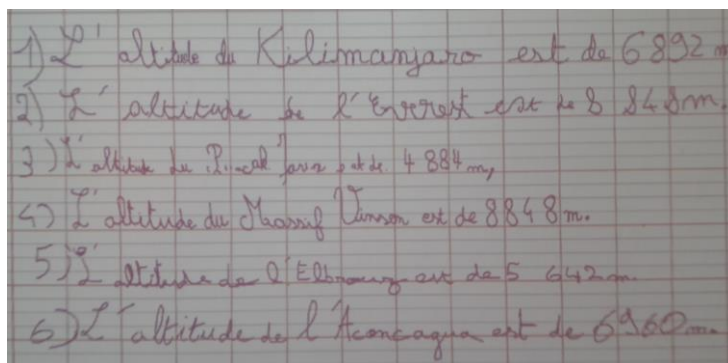 1) L'altitude du Kilimanjaro est de 6892 m
2) L'altitude de l'Everest est de 8 848m
3) L'altitude du Puncak Jaya est de 4 884 m,
4) L'altitude du Massif Vinson est de 8848 m.
5) L'altitude de l'Elbrouz est de 5 642 m.
6) L'altitude de l'Aconcagua est de 6960 m.